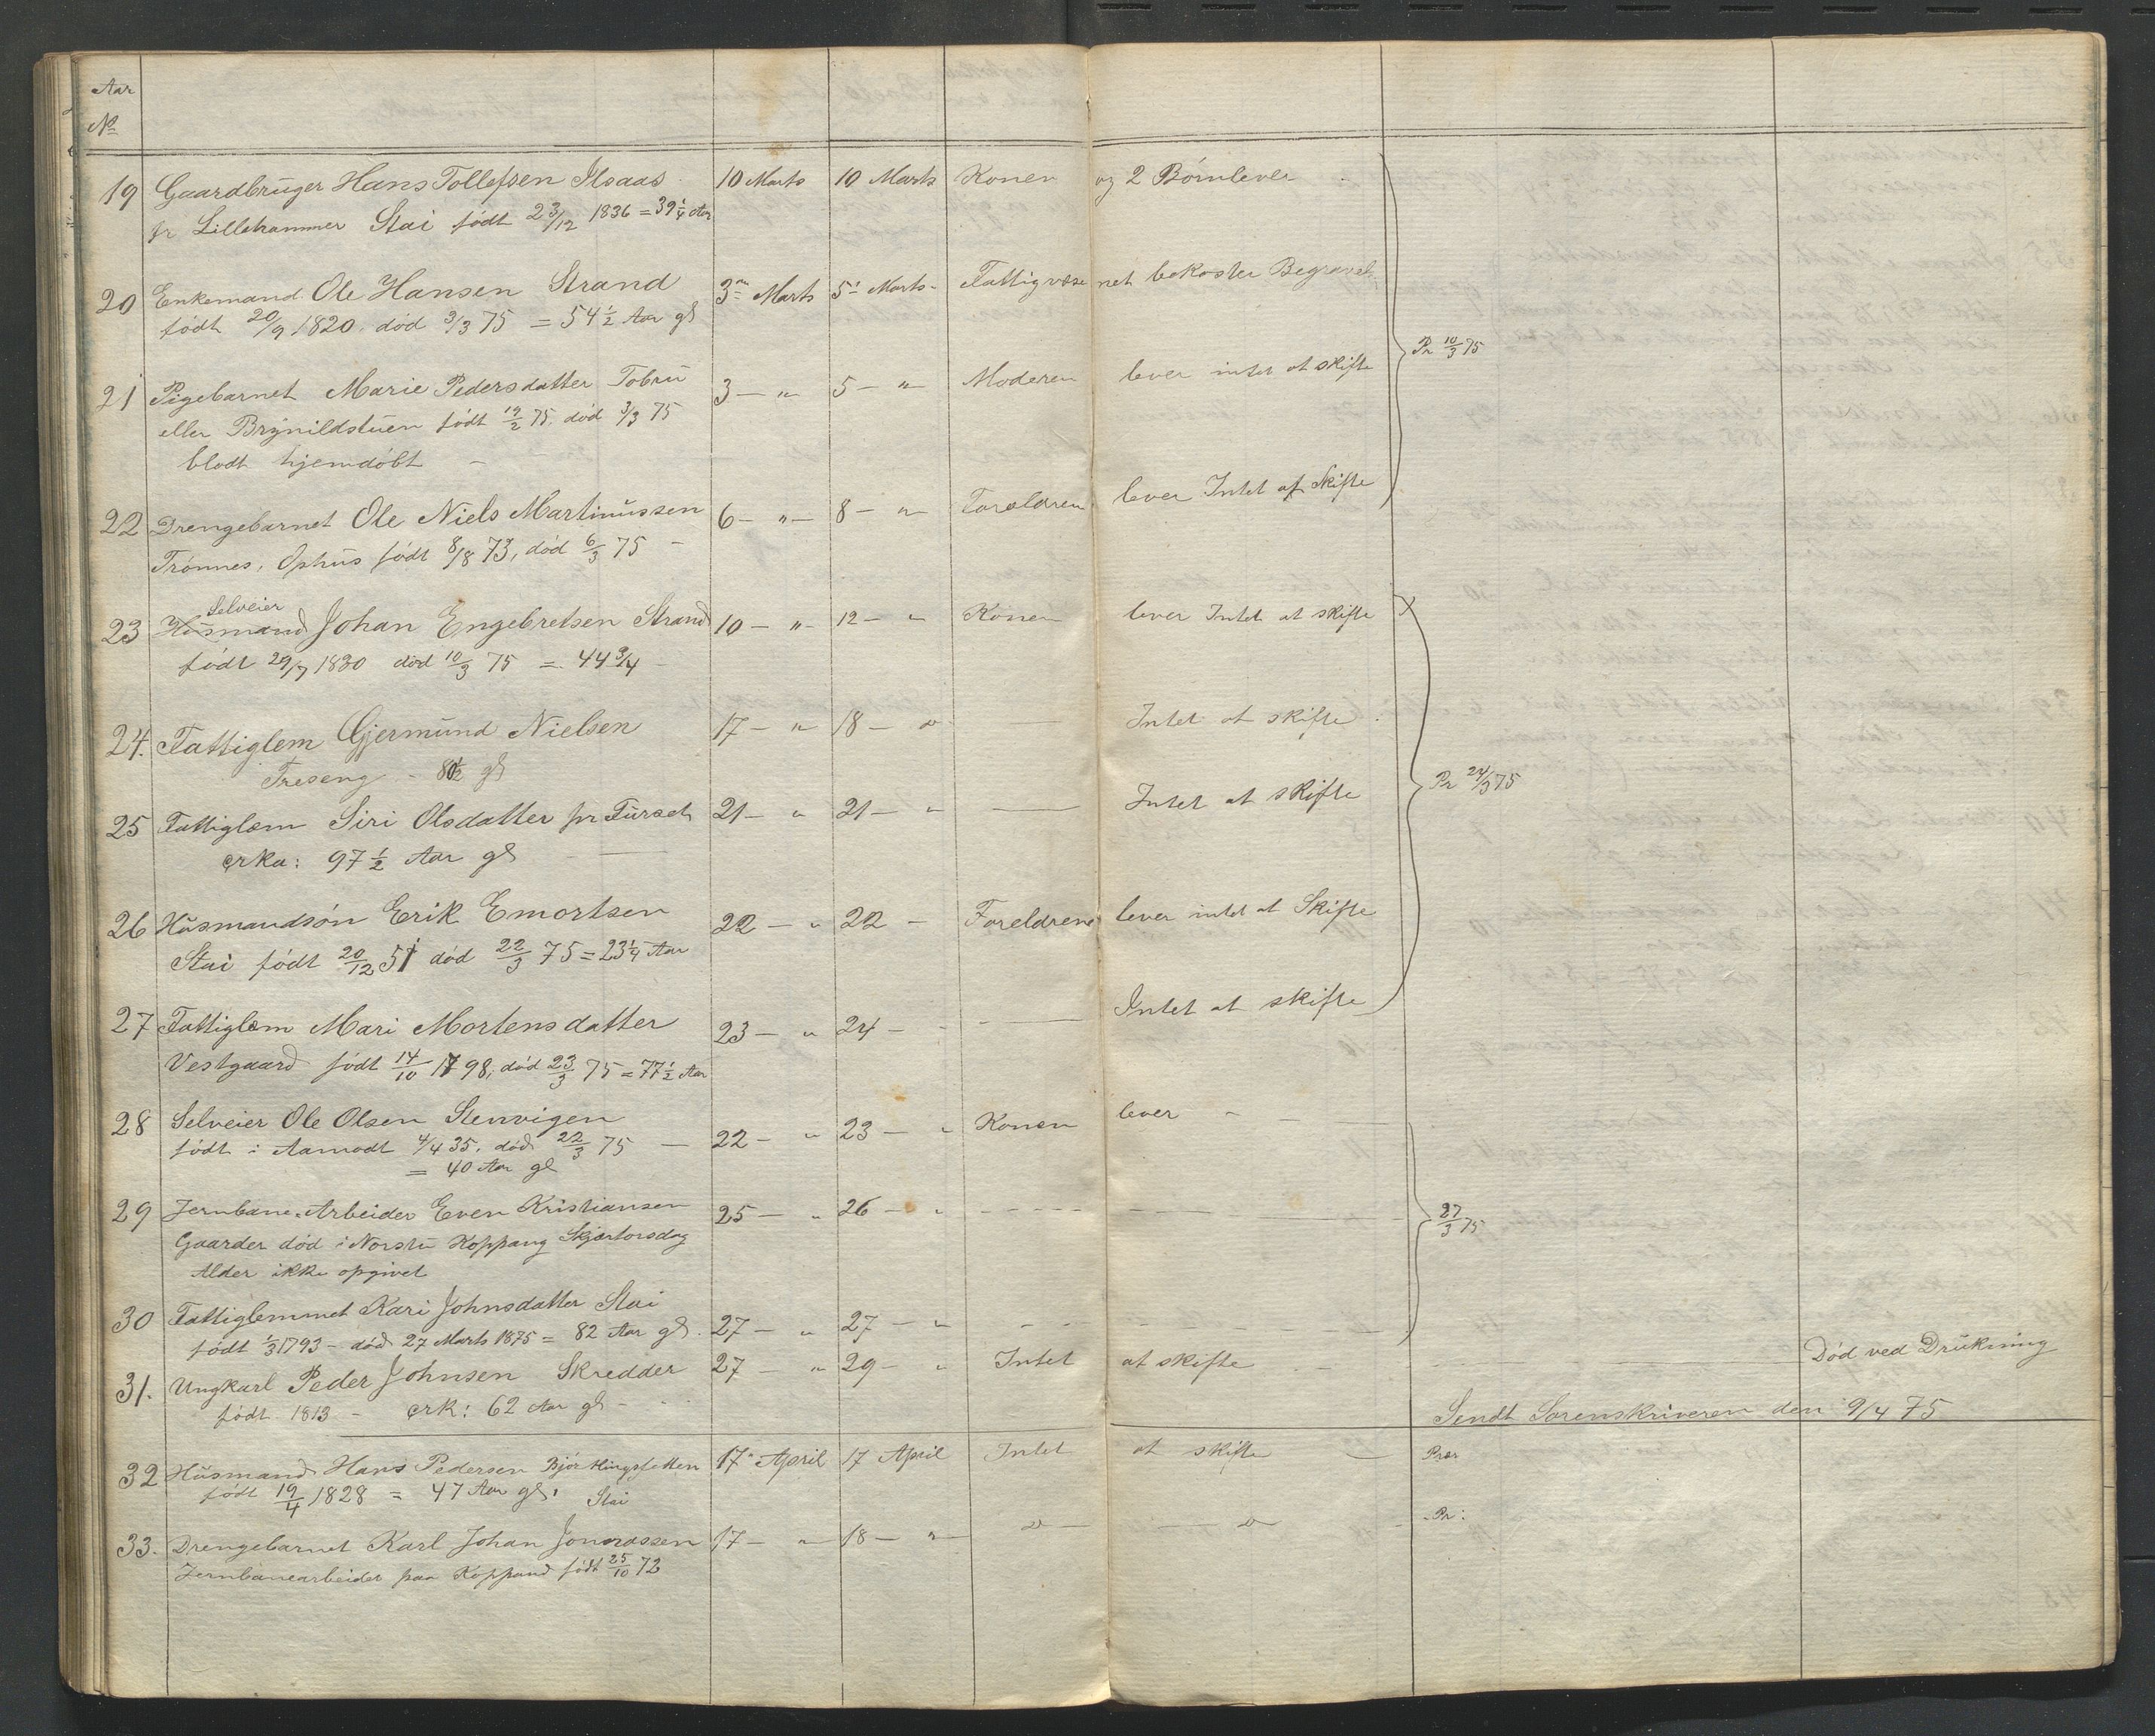 Aar
No
19 Gaardbrüger Hans Tollefsen Ilsaas 10 Marts 10 Marts Konen og 2 Börn lever
fr Lillehammer Stai födt 23/12 1836 = 39 1/4 Aar
20 Enkemand Ole Hansen Strand 3 Marts 5 Marts Fattigvæsenet bekoster Begravels
födt 20/9 1820. död 3/3 75 = 54 1/2 Aar gl
Pr 10/3 75
21 Pigebarnet Marie Pedersdatter Tobrü 3 — " 5 — " Moderen lever intet at skifte
eller Brÿnildstüen födt 12/2 75, död 3/3 75
blodt hjemdöbt —
22 Drengebarnet Ole Niels Martinüssen 6 — " — 8 — " Forældrene lever Intet at Skifte
Trönnes, Ophüs födt 8/8 73, död 6/3 75 —
Selveier
23 Hüsmand Johan Engebretsen Strand 10 — " 12 — " Konen lever Intet at skifte X
födt 29/7 1830 död 10/3 75 = 44 3/4
24. Fattiglem Gjermünd Nielsen 17 — " 18 — " — Intet at skifte
Treseng — 80 1/2 gl
Pr 24/3 75
25 Fattiglæm Siri Olsdatter pr Fürset 21 — " 21 — " — Intet at skifte
crka: 97 1/2 Aar gl —
26 Hüsmandsön Erik Emortsen 22 — " 22 — Foreldrene lever intet at Skifte
Stai födt 20/12 51 död 22/3 75 = 23 1/4 Aar
27 Fattiglæm Mari Mortensdatter 23 — " 24 — — Intet at skifte
Vestgaard födt 14/10 1798, död 23/3 75 = 77 1/2 Aar
28 Selveier Ole Olsen Stenvigen 22 — " 23 — " Konen lever — — —
födt i Aamodt 4/4 35. död 22/3 75 —
= 40 Aar gl
29 Jernbane-Arbeider Even Kristiansen 25 — " 26 — " - - - -
27/3 75
Gaarder död i Norstü Koppang Skjærtorsdag
Alder ikke opgivet
30 Fattiglemmet Kari Johnsdatter Stai 27 — " 27 — " - -
födt 1/3 1793 — död 27 Marts 1875 = 82 Aar gl.
31. Ungkarl Peder Johnsen Skredder 27 — " 29 — " Intet at skifte — Död ved Drükning
födt 1813 — crk: 62 Aar gl —
Sendt Sorenskriveren den 9/4 75
32 Hüsmand Hans Pedersen 17 April 17 April Intet at skifte — Præs
födt 19/4 1828 = 47 Aar gl. Stai
33. Drengebarnet Karl Johan Jonasson 17 — " 18 — " — " — — " — Pr:
Jernbanearbeider paa Koppand födt 25/10 72